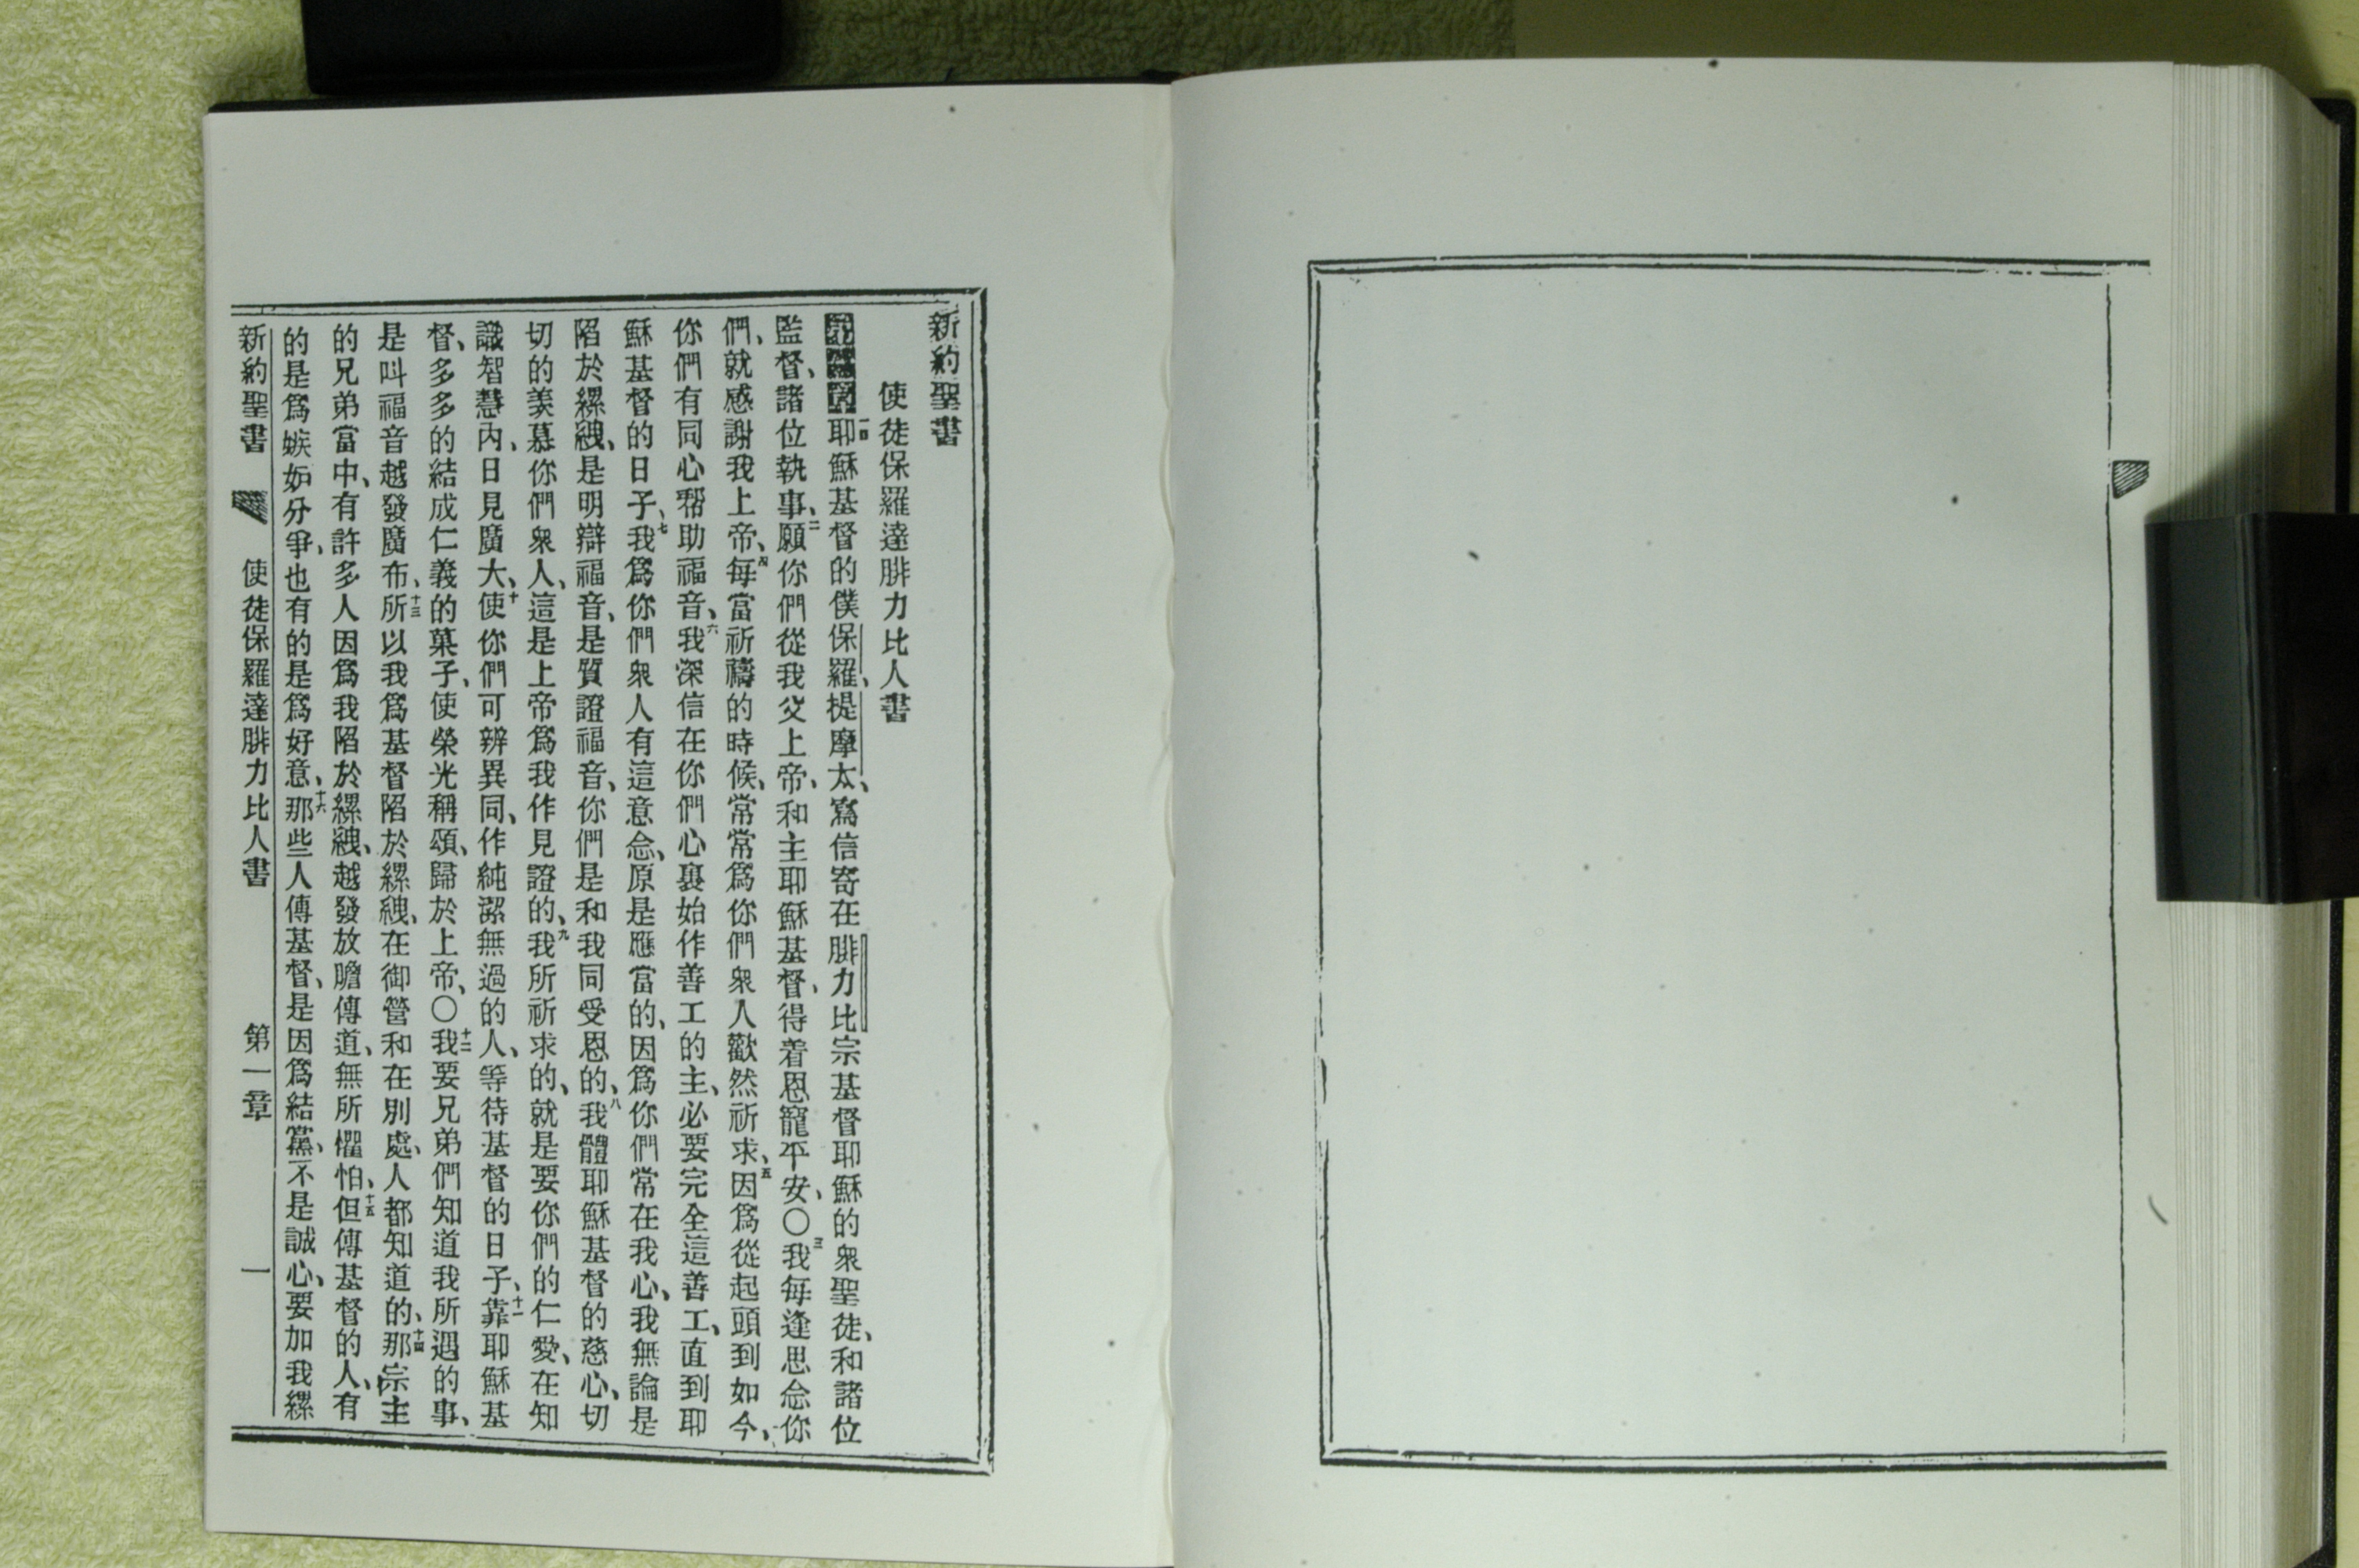 新約聖書
使徒保羅達腓力比人書
第一章 一耶穌基督的僕保羅、提摩太、寫信寄在腓力比宗基督耶穌的衆聖徒、和諸位
監督、諸位執事、二願你們從我父上帝、和主耶穌基督、得着恩寵平安、〇三我每逢思念你
們、就感謝我上帝、四每當祈禱的時候、常常爲你們衆人歡然祈求、五因爲從起頭到如今、
你們有同心帮助福音、六我深信在你們心裏始作善工的主、必要完全這善工、直到耶
穌基督的日子、七我爲你們衆人有這意念、原是應當的、因爲你們常在我心、我無論是
陷於縲絏、是明辯福音、是質證福音、你們是和我同受恩的、八我體耶穌基督的慈心、切
切的羨慕你們衆人、這是上帝爲我作見證的、九我所祈求的、就是要你們的仁愛、在知
識智慧內、日見廣大、十使你們可辨異同、作純潔無過的人、等待基督的日子、十一靠耶穌基
督、多多的結成仁義的菓子、使榮光稱頌、歸於上帝、〇十二我要兄弟們知道我所遇的事、
是叫福音越發廣布、十三所以我爲基督陷於縲絏、在御營和在別處、人都知道的、十四那宗主
的兄弟當中、有許多人因爲我陷於縲絏、越發放膽傳道、無所懼怕、十五但傳基督的人、有
的是爲嫉妒分爭、也有的是爲好意、十六那些人傳基督、是因爲結黨、不是誠心、要加我縲
新約聖書 使徒保羅達腓力比人書 第一章 一